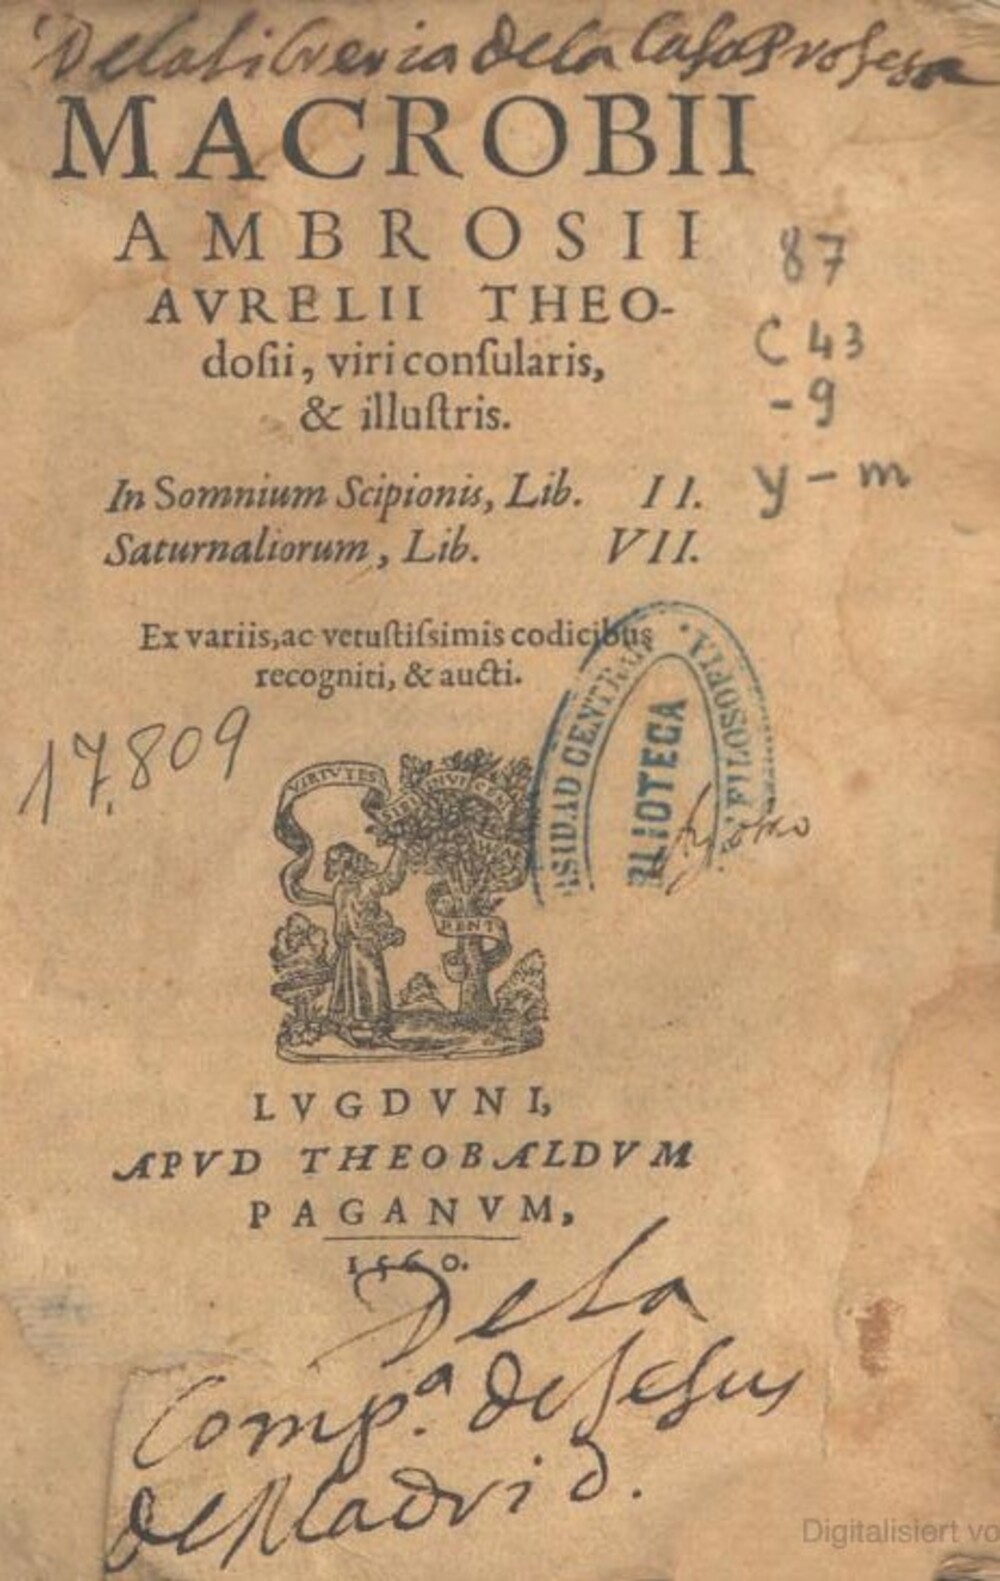 De la libreria de la Casa Professa
MACROBII
AMBROSII
AVRELII THEO-
dosii, viri consularis,
& illustris.
87
C 43
- 9
y - m
In Somnium Scipionis, Lib. II.
Saturnaliorum, Lib. VII.
Ex variis, ac vetustissimis codicibus
recogniti, & aucti.
17,809
VIRTVTES
SIBI INVICEM
HÆ
RENT
RSIDAD CENTRAL
BLIOTECA
FILOSOFIA
LVGDVNI,
APVD THEOBALDVM
PAGANVM,
1560.
De la
Comp.ª de Jesus
de Madrid.
Digitalisiert vo